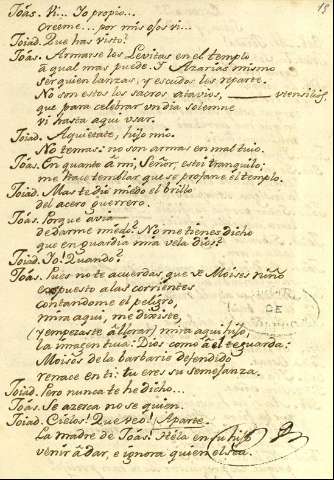 15
Joás. Vi... Io propio...
creeme... por mis ojos vi...
Joiad. Que has visto?
Joás. Armarse los Levitas en el templo
à qual mas puede. I Azarias mismo
ser quien lanzas, y escudos les reparte.
No son estos los sacros atavios,
vtensilios,
que para celebrar un dia solemne
vi hasta aqui usar.
Joiad. Aquietate, hijo mio.
No temas: no son armas en mal tuio.
Joás. En quanto à mi, Señor, estoi tranquilo;
me hace temblar que se profane el templo.
Joiad. Mas te diò miedo el brillo
del acero guerrero.
Joás. Porque avia
de darme miedo? No me tienes dicho
que en guardia mia vela dios?
Joiad. Io? Quando?
Joás. Pues no te acuerdas, que de Moises niño
expuesto a las corrientes
contandome el peligro,
mira aqui, me dixiste,
(y empezaste à llorar) mira aqui, hijo,
la imagen tua: Dios como à el te guarda:
Moisès de la barbarie defendido
renace en ti: tu eres su semejanza.
Joiad. Pero nunca te he dicho...
Joás. Se azerca no se quien.
Joiad. Cielos! Que veo! Aparte.
La madre de Joás! Hela en su hijo
venir à dar, e ignora quien el sea.